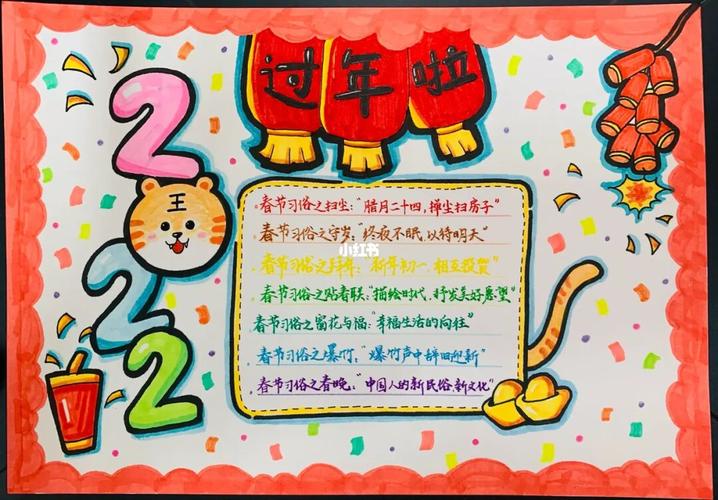 过年啦
2
王
2
2
春节习俗之扫尘:"腊月二十四,掸尘扫房子"
春节习俗之守岁:"终夜不眠,以待明天"
小红书
春节习俗之拜年:"新年初一,相互祝贺"
春节习俗之贴春联:"描绘时代,抒发美好愿望"
春节习俗之窗花与福:"幸福生活的向往"
春节习俗之爆竹:"爆竹声中辞旧迎新"
春节习俗之春晚:"中国人的新民俗,新文化"